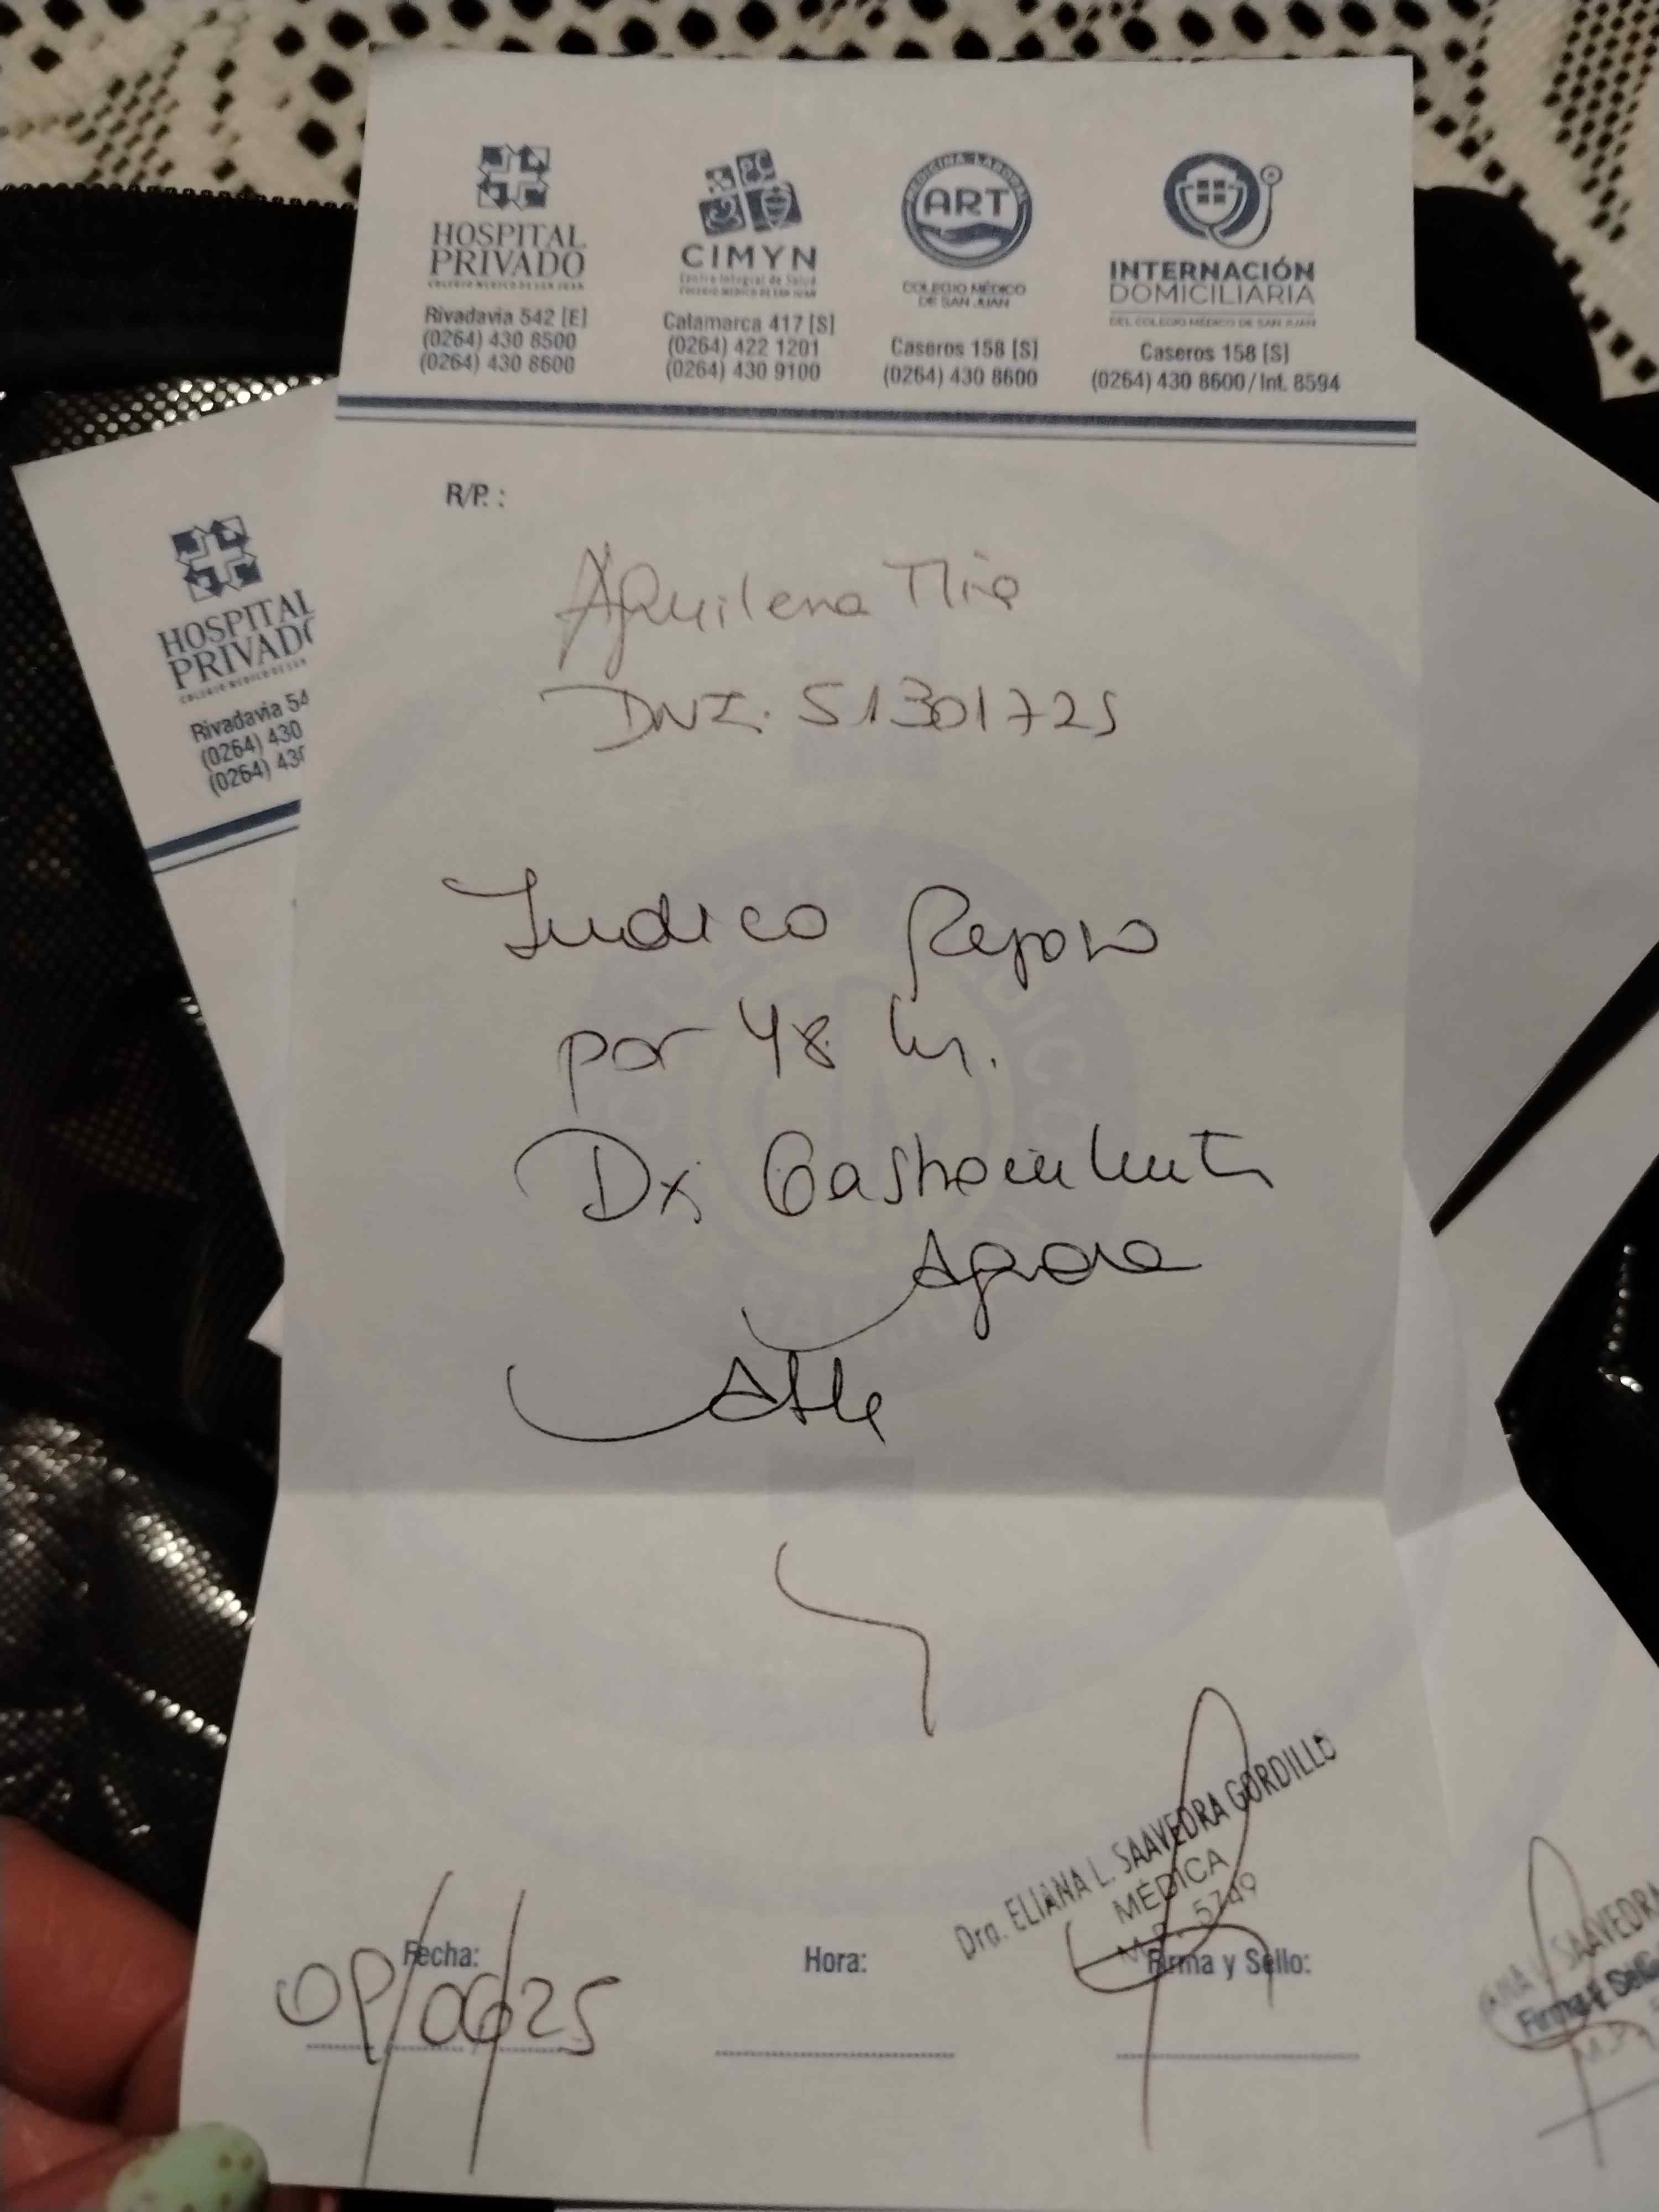 HOSPITAL
PRIVADO
COLEGIO MÉDICO DE SAN JUAN
Rivadavia 542 [E]
(0264) 430 8500
(0264) 430 8600
CIMYN
Centro Integral de Salud
COLEGIO MÉDICO DE SAN JUAN
Catamarca 417 [S]
(0264) 422 1201
(0264) 430 9100
MEDICINA LABORAL
ART
COLEGIO MÉDICO
DE SAN JUAN
Caseros 158 [S]
(0264) 430 8600
INTERNACIÓN
DOMICILIARIA
DEL COLEGIO MÉDICO DE SAN JUAN
Caseros 158 [S]
(0264) 430 8600 / Int. 8594
R/P. :
DNI. 51301725
Indico Reposo
por 48 hs.
Dx Gastroenteritis
Aguda
Dra. ELIANA L. SAAVEDRA GORDILLO
MÉDICA
M.P. 5749
Fecha:
Hora:
Firma y Sello:
HOSPITAL
PRIVADO
Rivadavia 54
(0264) 430
(0264) 43
SAAVEDRA
Firma y Sello